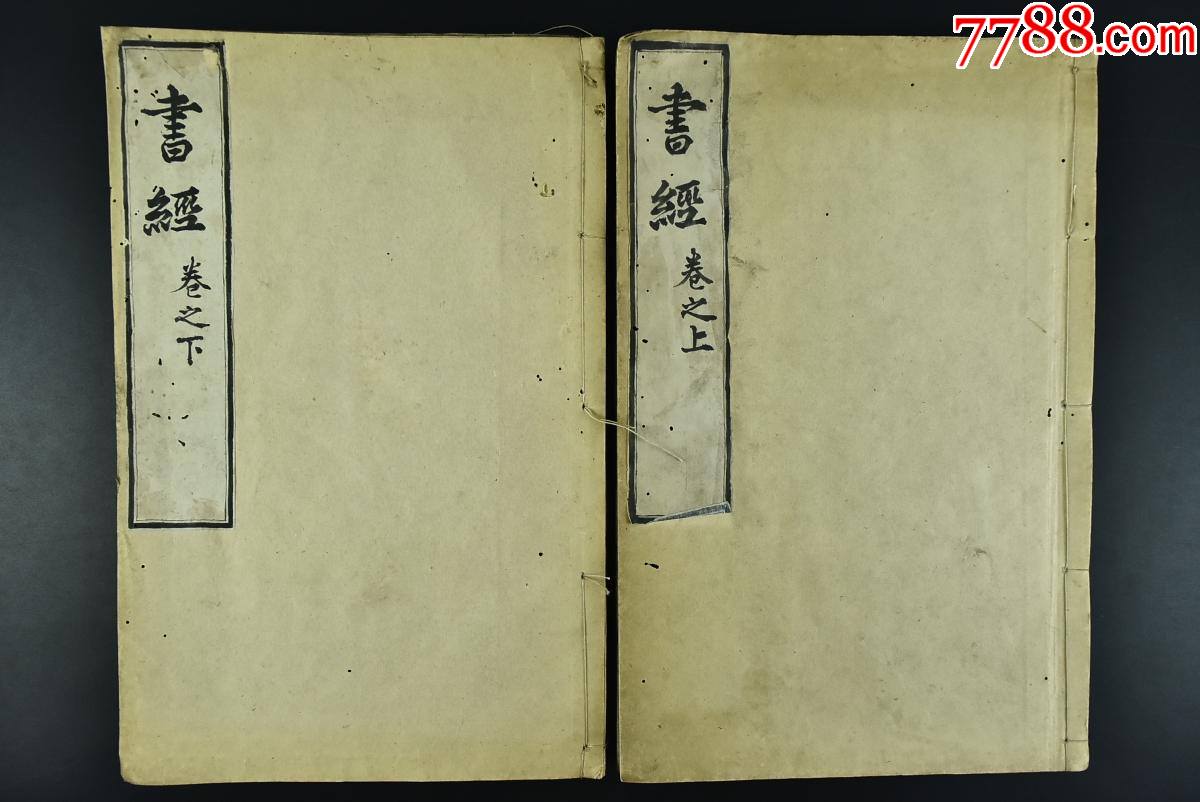 7788.com
書經
卷之上
書經
卷之下